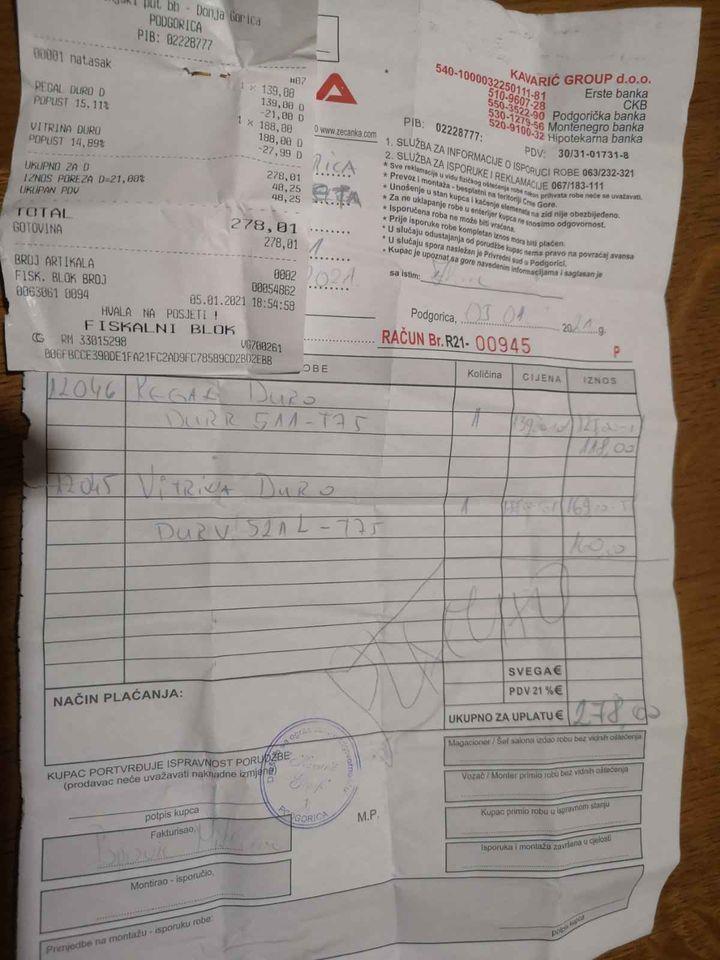 put bb - Donja Gorica
PODGORICA
PIB: 02228777
00001 natasak
#07
1 × 139,00
REGAL DURO D 139,00 D
POPUST 15,11% -21,00 D
1 × 188,00
VITRINA DURO 188,00 D
POPUST 14,89% -27,99 D
UKUPNO ZA D 278,01
IZNOS POREZA D=21,00% 48,25
UKUPAN PDV 48,25
TOTAL 278,01
GOTOVINA 278,01
BROJ ARTIKALA 0002
FISK. BLOK BROJ 00054862
0063061 0094 05.01.2021 18:54:58
HVALA NA POSJETI !
FISKALNI BLOK
RM 33015298 VG700261
006FBCCE390DE1FA21FC2AD9FC78589CD2BD2EBB
www.zecanka.com
KAVARIĆ GROUP d.o.o.
540-1000032250111-81 Erste banka
510-9607-28 CKB
550-3522-90 Podgorička banka
530-1279-56 Montenegro banka
520-9100-32 Hipotekarna banka
PIB: 02228777; PDV: 30/31-01731-8
1. SLUŽBA ZA INFORMACIJE O ISPORUCI ROBE 063/232-321
2. SLUŽBA ZA ISPORUKE I REKLAMACIJE 067/183-111
* Sve reklamacije u vidu fizičkog oštećenja robe nakon prihvata robe neće se uvažavati.
* Prevoz i montaža - besplatni na teritoriji Crne Gore.
* Unošenje u stan kupca i kačenje elemenata na zid nije obezbijeđeno.
* Za ne uklapanje robe u enterijer kupca ne snosimo odgovornost.
* Isporučena roba ne može biti vraćena.
* Prije isporuke robe kompletan iznos mora biti plaćen.
* U slučaju odustajanja od porudžbe kupac nema pravo na povraćaj avansa
* U slučaju spora nasležan je Privredni sud u Podgorici.
* Kupac je upoznat sa gore navedenim informacijama i saglasan je
sa istim:
Podgorica, 03 01 2021 g.
RAČUN Br. R21- 00945 P
ROBE Količina CIJENA IZNOS
12046 REGAL DURO
DURR 511-T75 1
118,00
12045 VITRINA DURO
1
DURV 521L-T75
160,00
SVEGA €
PDV 21 % €
UKUPNO ZA UPLATU € 278,00
NAČIN PLAĆANJA:
KUPAC PORTVRĐUJE ISPRAVNOST PORUDŽBE:
(prodavac neće uvažavati naknadne izmjene)
potpis kupca
M.P.
PODGORICA
1
Fakturisao,
Montirao - isporučio,
Primjedbe na montažu - isporuku robe:
Magacioner / Šef salona izdao robu bez vidnih oštećenja
Vozač / Monter primio robu bez vidnih oštećenja
Kupac primio robu u ispravnom stanju
Isporuka i montaža završena u cjelosti
potpis kupca